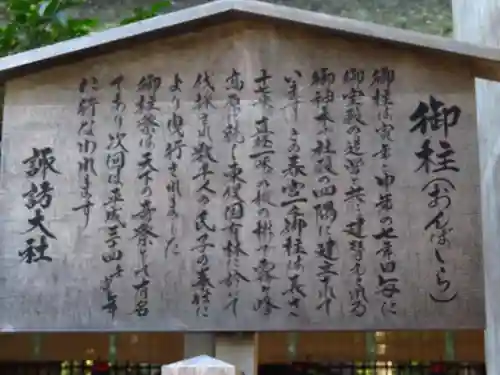 御柱(おんばしら)
御柱は寅年と申年の七年目毎に
御宝殿の造営と共に建替えられる
御神木で社殿の四隅に建立されて
います この表 一之御柱は長さ
十七米 直径一米の樅の樹で霧ヶ峰
高原に続く東俣国有林に於いて
伐採され数千人の氏子の奉仕に
より曳行されました
御柱祭は天下の奇祭として有名
であり次回は平成三十四年 寅年
に行なわれます
諏訪大社